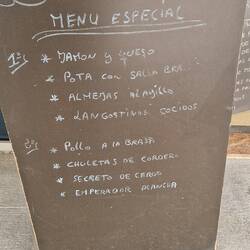 MENU ESPECIAL
1º * JAMON Y QUESO
* POTA CON SALSA BRA..
* ALMEJAS AL AJILLO
* LANGOSTINOS COCIDOS
2º * POLLO A LA BRASA
* CHULETAS DE CORDERO
* SECRETO DE CERDO
* EMPERADOR PLANCHA